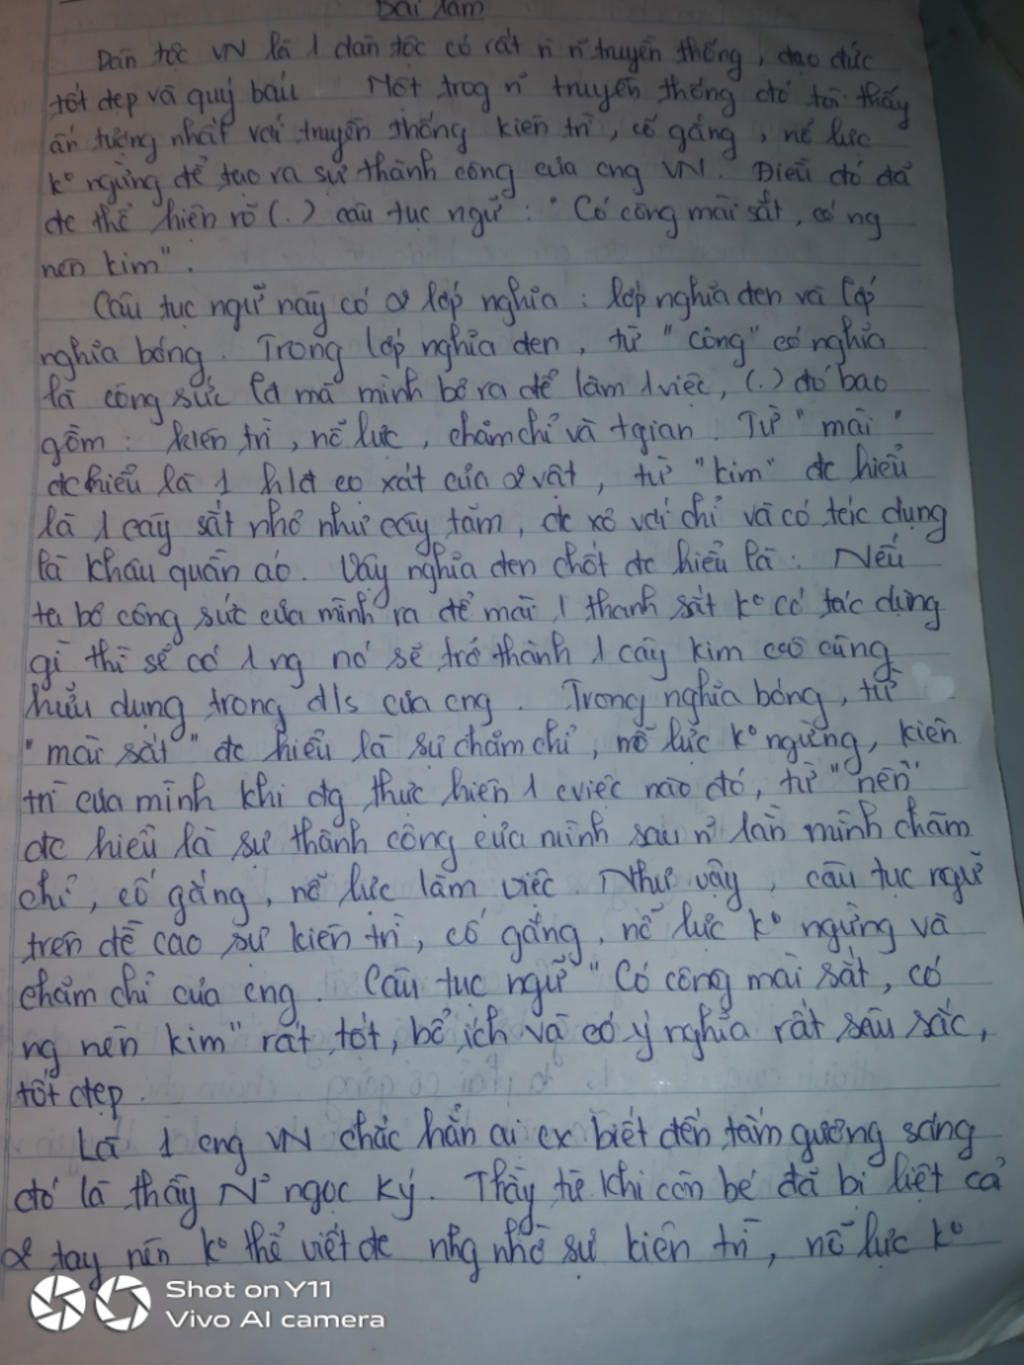 Bài làm
Dân tộc VN là 1 dân tộc có rất n n~ truyền thống, đạo đức
tốt đẹp và quý báu Một trog n~ truyền thống đó tôi thấy
ấn tượng nhất với truyền thống kiên trì, cố gắng, nỗ lực
ko ngừng để tạo ra sự thành công của cng VN. Điều đó đã
đc thể hiện rõ (.) câu tục ngữ: "Có công mài sắt, có ng
nên kim".
Câu tục ngữ này có 2 lớp nghĩa: lớp nghĩa đen và lớp
nghĩa bóng. Trong lớp nghĩa đen, từ "công" có nghĩa
là công sức lđ mà mình bỏ ra để làm 1 việc, (.) đó bao
gồm: kiên trì, nỗ lực, chăm chỉ và tgian. Từ "mài"
đc hiểu là 1 h lđ cọ xát của 2 vật, từ "kim" đc hiểu
là 1 cây sắt nhỏ như cây tăm, đc xỏ với chỉ và có tác dụng
là khâu quần áo. Vậy nghĩa đen chốt đc hiểu là: Nếu
ta bỏ công sức của mình ra để mài 1 thanh sắt ko có tác dụng
gì thì sẽ có 1 ng nó sẽ trở thành 1 cây kim vô cùng
hữu dụng trong đ/s của cng. Trong nghĩa bóng, từ
"mài sắt" đc hiểu là sự chăm chỉ, nỗ lực ko ngừng, kiên
trì của mình khi đg thực hiện 1 cviệc nào đó, từ "nên"
đc hiểu là sự thành công của mình sau n~ lần mình chăm
chỉ, cố gắng, nỗ lực làm việc. Như vậy, câu tục ngữ
trên đề cao sự kiên trì, cố gắng, nỗ lực ko ngừng và
chăm chỉ của cng. Câu tục ngữ "Có công mài sắt, có
ng nên kim" rất tốt, bổ ích và có ý nghĩa rất sâu sắc,
tốt đẹp.
Là 1 cng VN chắc hẳn ai cx biết đến tấm gương sáng
đó là thầy N~ ngọc Ký. Thầy từ khi còn bé đã bị liệt cả
2 tay nên ko thể viết đc nhg nhờ sự kiên trì, nỗ lực ko
Shot on Y11
Vivo AI camera